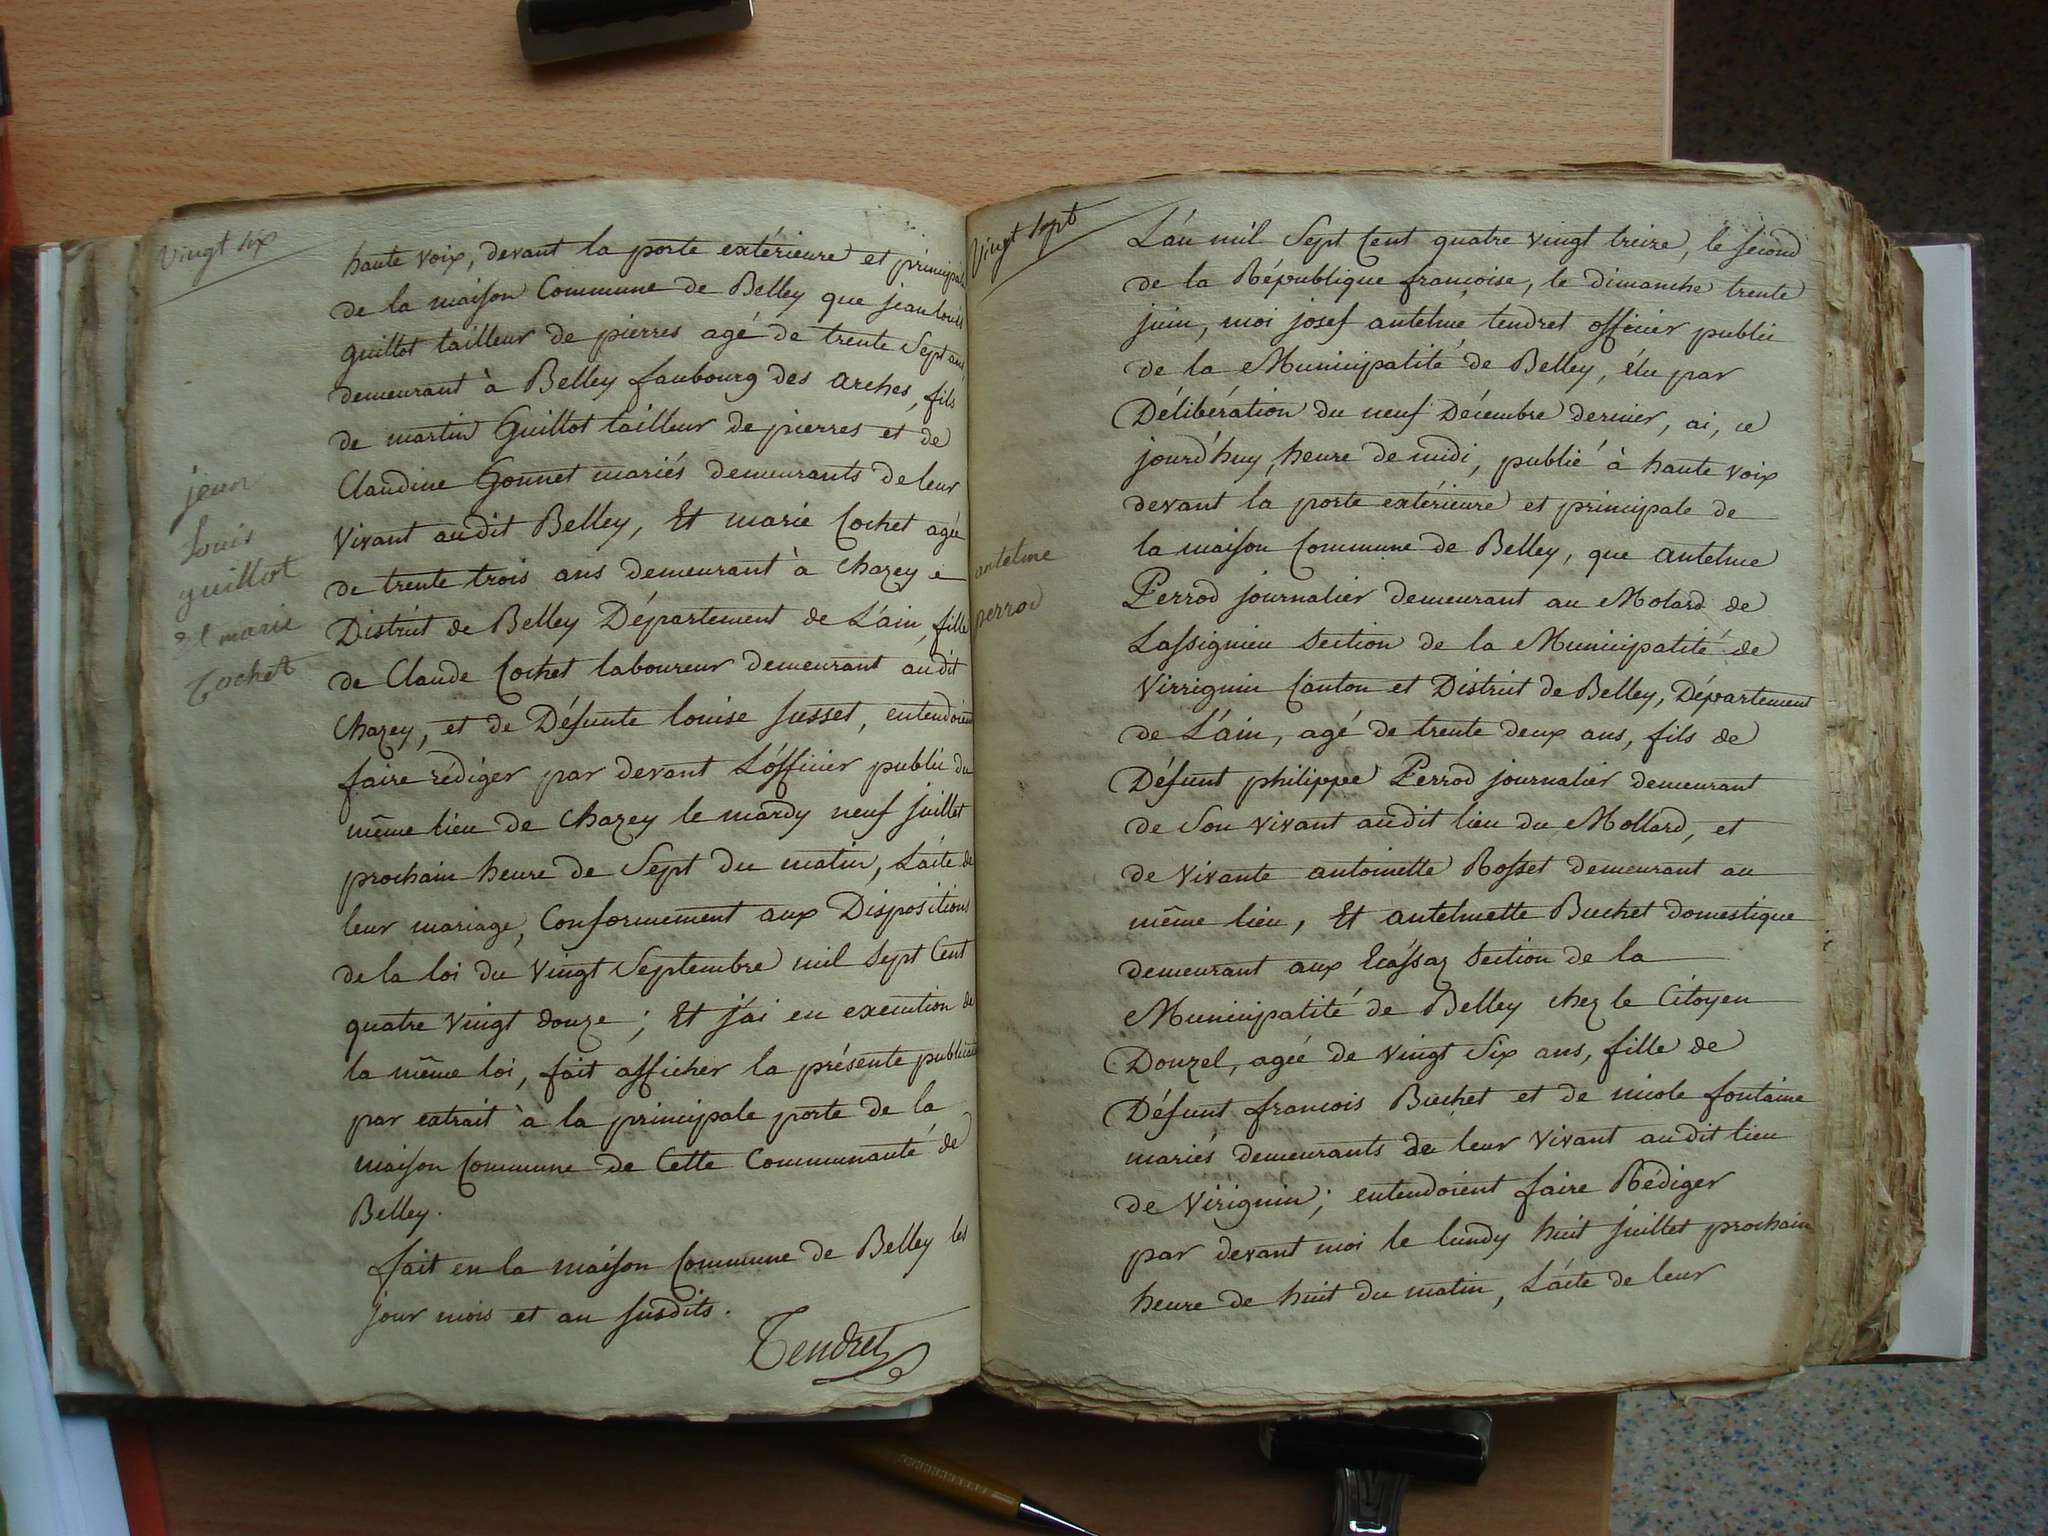 Vingt six
haute voix, devant la porte extérieure et principale
de la maison Commune de Belley que jean louis
guillot tailleur de pierres agé de trente Sept ans
demeurant à Belley faubourg des arches, fils
de martin Guillot tailleur de pierres et de
Claudine Gonnet mariés demeurants de leur
vivant audit Belley, Et marie Cochet agée
de trente trois ans demeurant à Chazey
District de Belley Département de L'ain, fille
de Claude Cochet laboureur demeurant audit
Chazey, et de Défunte louise susset, entendoient
faire rédiger par devant L'officier public du
même lieu de Chazey le mardy neuf juillet
prochain heure de Sept du matin, L'acte de
leur mariage, Conformement aux Dispositions
de la loi du vingt Septembre mil Sept Cent
quatre vingt douze ; Et j'ai en execution de
la même loi, fait afficher la présente publication
par extrait à la principale porte de la
maison Commune de Cette Communauté de
Belley.
fait en la maison Commune de Belley les
jour mois et an susdits.
Tendret
jean
louis
guillot
et marie
Cochet
Vingt Sept
L'an mil Sept Cent quatre vingt treize, le second
de la République françoise, le dimanche trente
juin, moi josef antelme tendret officier public
de la Municipalité de Belley, élu par
Délibération du neuf Décembre dernier, ai, ce
jourd'huy, heure de midi, publié à haute voix
devant la porte extérieure et principale de
la maison Commune de Belley, que antelme
Perrod journalier demeurant au Molard de
Lassignieu section de la Municipalité de
Virrignin Canton et District de Belley, Département
de L'ain, agé de trente deux ans, fils de
Défunt philippe Perrod journalier demeurant
de Son vivant audit lieu du Mollard, et
de vivante antoinette Rosset demeurant au
même lieu, Et antelmette Buchet domestique
demeurant aux Ecassaz section de la
Municipalité de Belley chez le Citoyen
Douzel, agée de vingt Six ans, fille de
Défunt francois Buchet et de nicole fontaine
mariés demeurants de leur vivant audit lieu
de Virignin ; entendoient faire Rédiger
par devant moi le lundy huit juillet prochain
heure de huit du matin, L'acte de leur
antelme
perrod